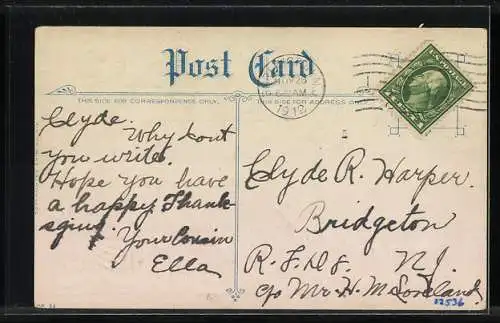 Post Card
THIS SIDE FOR CORRESPONDENCE ONLY.
THIS SIDE FOR ADDRESS ONLY.
NOV 26
1912
Clyde.
Why dont
you write.
Hope you have
a happy Thank-
sgiv
Your Cousin
Ella
Clyde R. Harper.
Bridgeton
R. F. D. N.J.
c/o Mr. H. M. Loveland.
12536